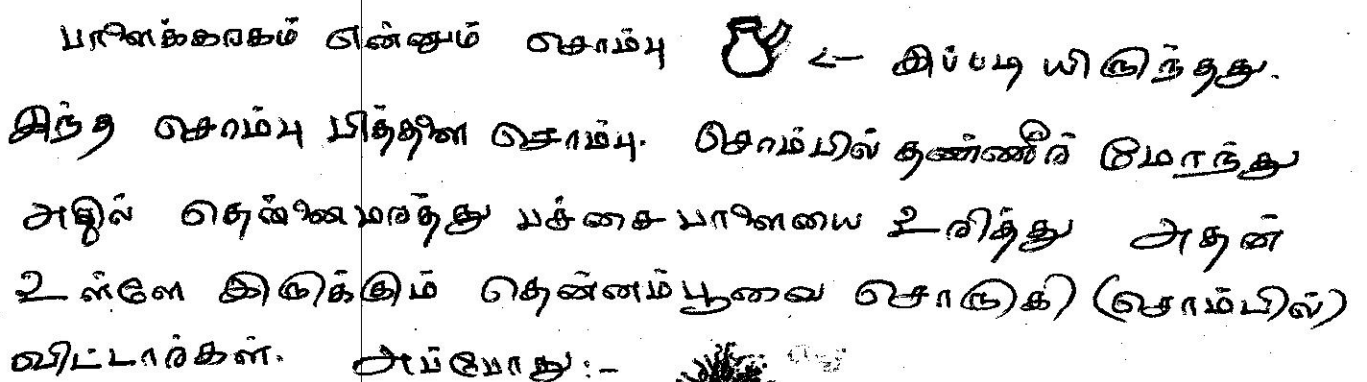 பாளைக்கரகம் என்னும் சொம்பு <— இப்படி யிருந்தது.
இந்த சொம்பு பித்தளை சொம்பு. சொம்பில் தண்ணீர் மோந்து
அதில் தென்னைமரத்து பச்சை பாளையை உரித்து அதன்
உள்ளே இருக்கும் தென்னம்பூவை சொருகி (சொம்பில்)
விட்டார்கள். அப்போது:-